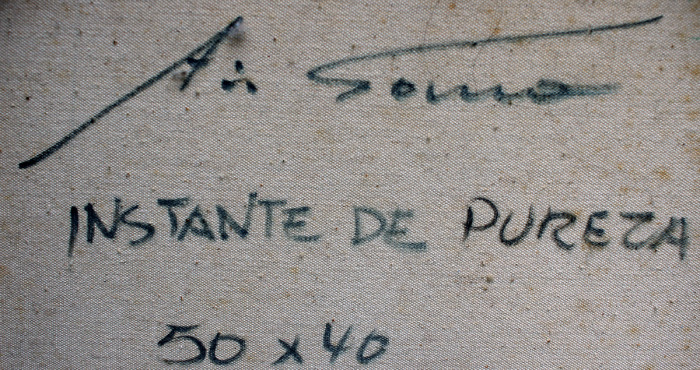 INSTANTE DE PUREZA
50 x 40